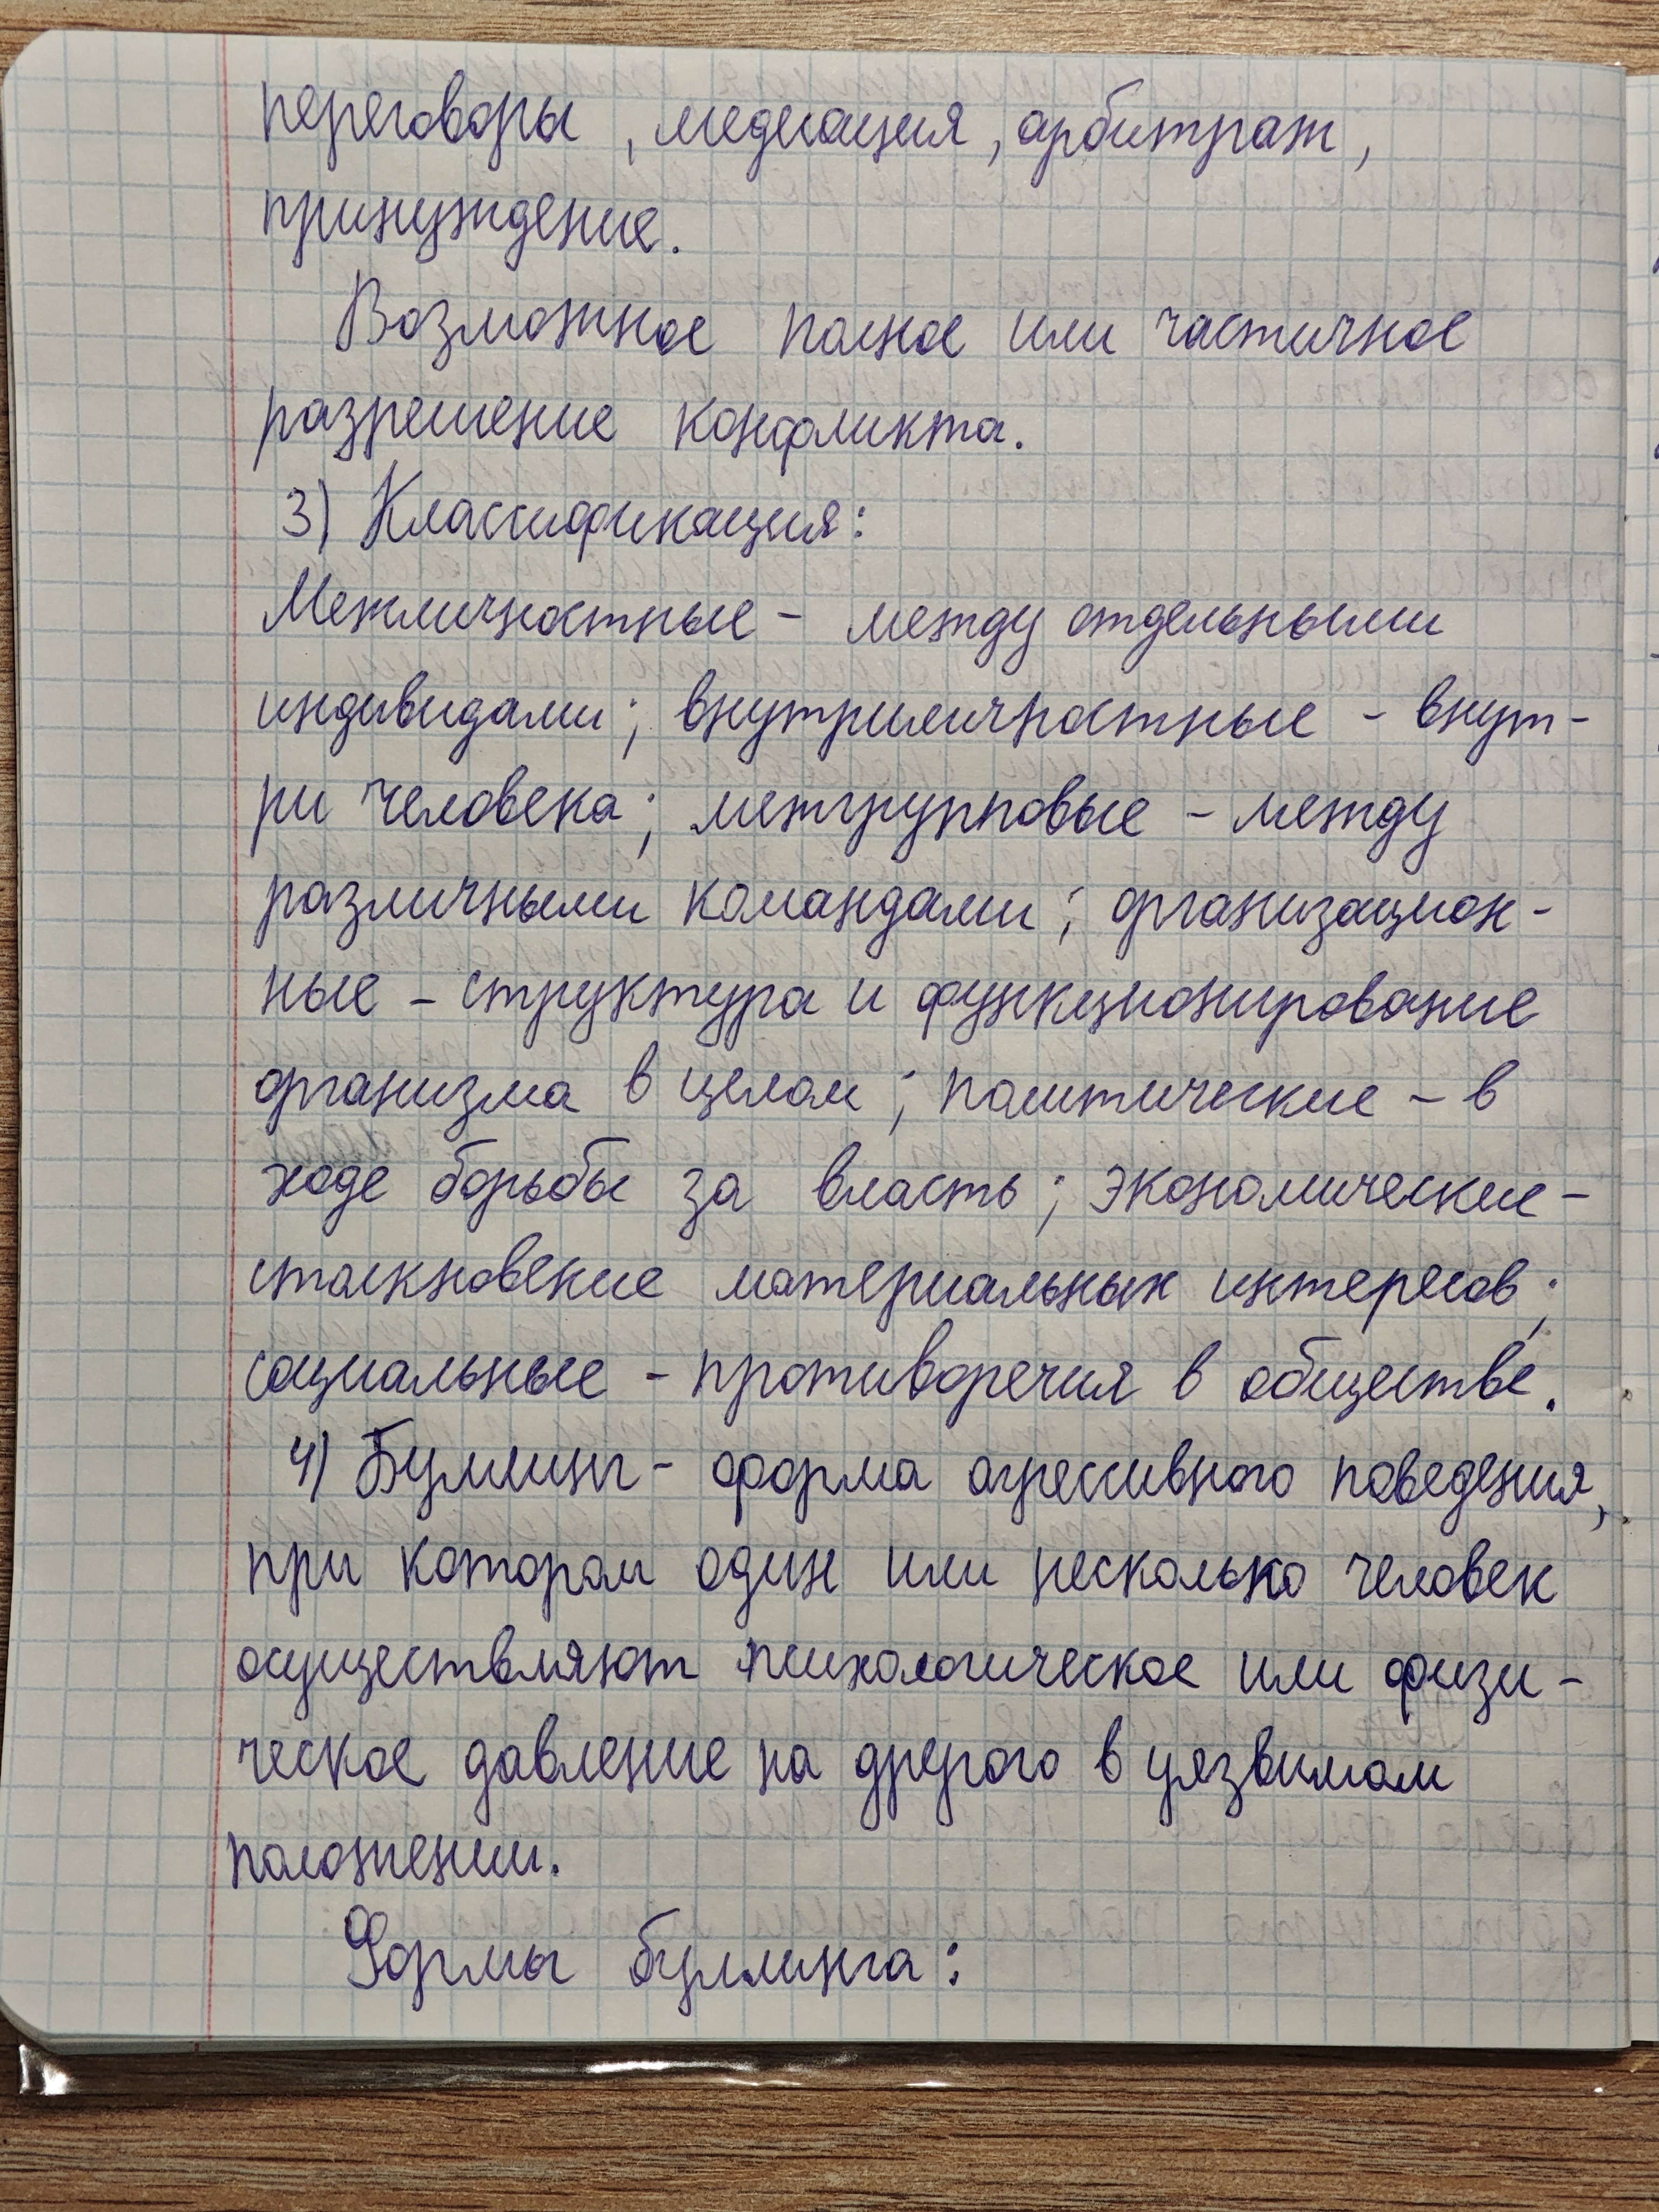 переговоры, медиация, арбитраж,
принуждение.
Возможное полное или частичное
разрешение конфликта.
3) Классификация:
Межличностные - между отдельными
индивидами; внутриличностные - внут-
ри человека; межгрупповые - между
различными командами; организацион-
ные - структура и функционирование
организма в целом; политические - в
ходе борьбы за власть; экономические -
столкновение материальных интересов;
социальные - противоречия в обществе.
4) Буллинг - форма агрессивного поведения,
при котором один или несколько человек
осуществляют психологическое или физи-
ческое давление на другого в уязвимом
положении.
Формы буллинга: